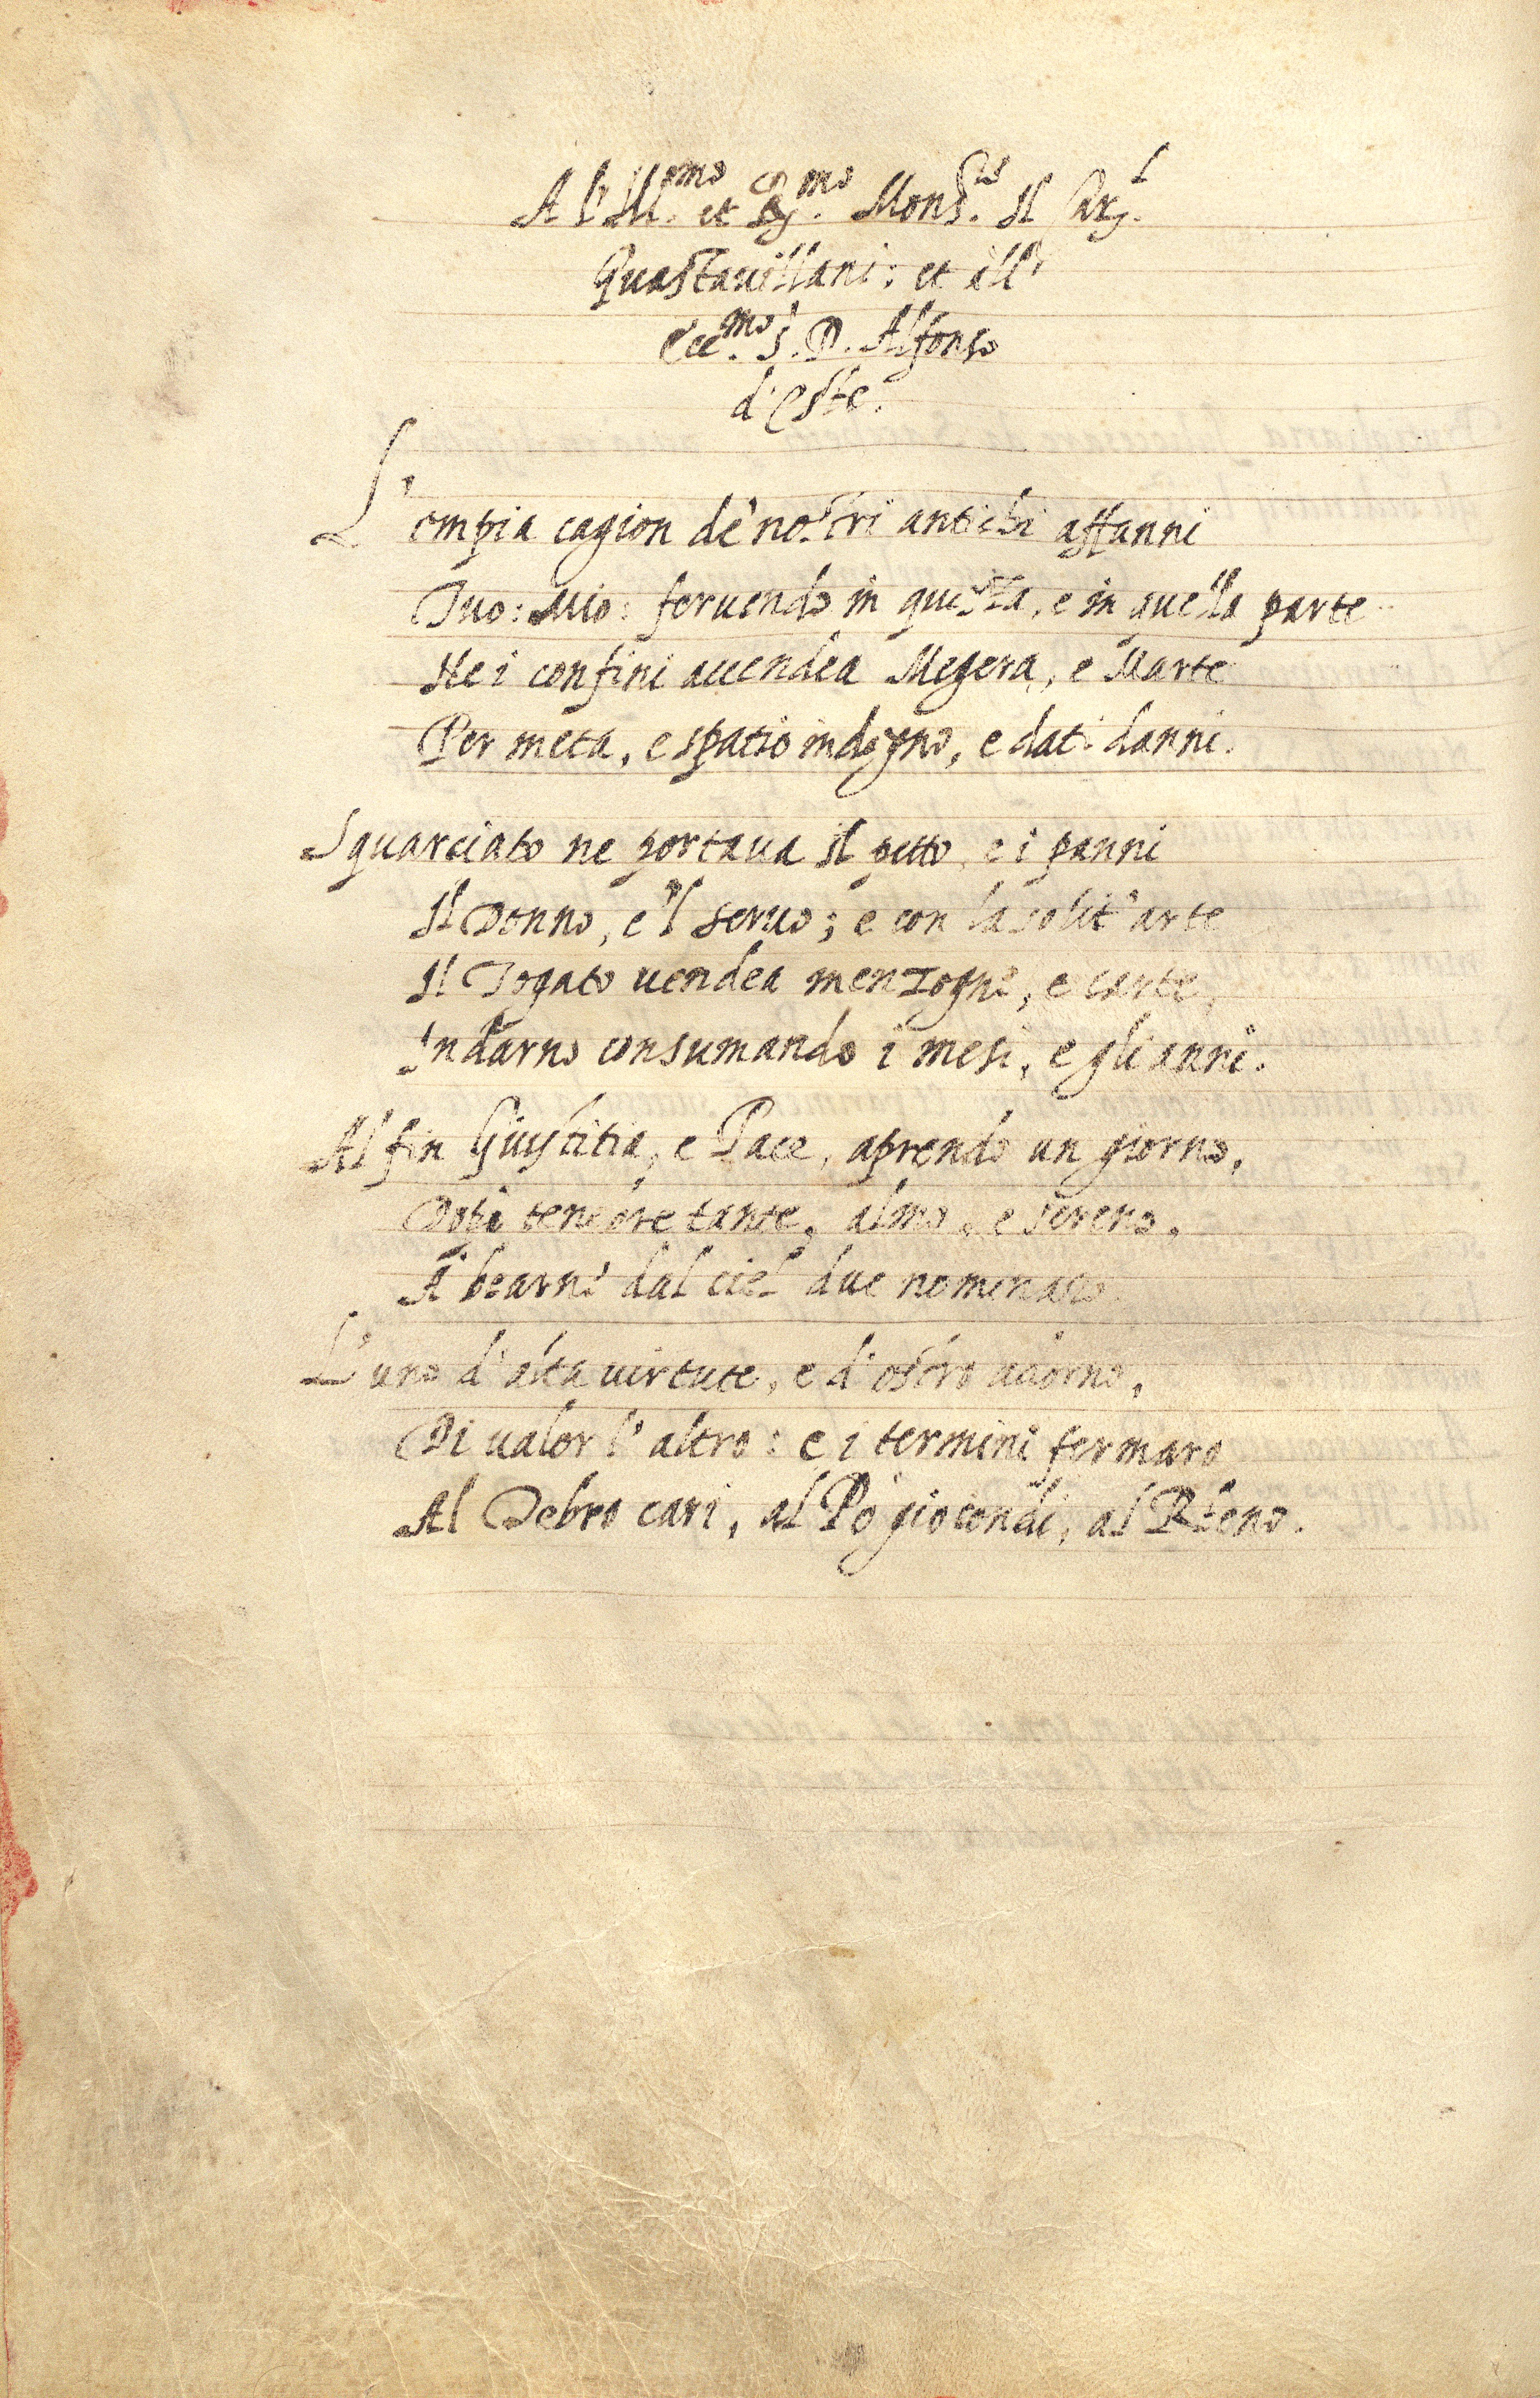 A l'Ill.mo et R.mo Mons.or Il Car.l
Guastauillani: et all'
Ecc.mo S. D. Alfonso
d'Este.
L'empia cagion de' nostri antichi affanni
Tuo: Mio: feruendo in questa, e in quella parte
Ne i confini accendea Megera, e Marte
Per meta, e spatio indegno, e dati danni.
Squarciato ne portaua il petto, e i panni
Il Donno, e 'l seruo; e con la solit' arte
Il Togato uendea menzogne, e carte,
Indarno consumando i mesi, e gli anni.
Al fin Giustitia, e Pace, aprendo un giorno,
Dopò tenebre tante, almo, e sereno,
A bearni dal ciel due nominaro.
L'uno d'alta uirtute, e d'ostro adorno,
Di ualor l'altro: e i termini fermaro
Al Tebro cari, al Pò giocondi, al Rheno.